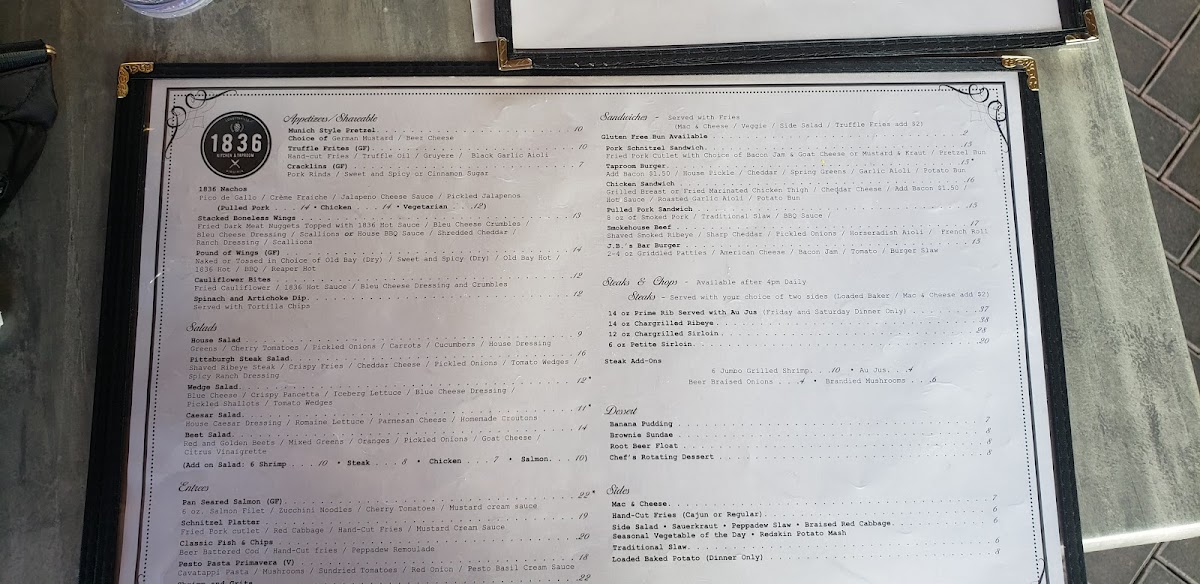 1836
KITCHEN & TAPROOM
Appetizers/Shareable
Munich Style Pretzel 10
Choice of German Mustard / Beer Cheese
Truffle Frites (GF) 10
Hand-cut Fries / Truffle Oil / Gruyere / Black Garlic Aioli
Cracklins (GF) 7
Pork Rinds / Sweet and Spicy or Cinnamon Sugar
1836 Nachos
Pico de Gallo / Crème Fraiche / Jalapeno Cheese Sauce / Pickled Jalapenos
(Pulled Pork . . . 14 • Chicken . . . 14 • Vegetarian . . . 12)
Stacked Boneless Wings 13
Fried Dark Meat Nuggets Topped with 1836 Hot Sauce / Bleu Cheese Crumbles /
Bleu Cheese Dressing / Scallions or House BBQ Sauce / Shredded Cheddar /
Ranch Dressing / Scallions
Pound of Wings (GF) 14
Naked or Tossed in Choice of Old Bay (Dry) / Sweet and Spicy (Dry) / Old Bay Hot /
1836 Hot / BBQ / Reaper Hot
Cauliflower Bites 12
Fried Cauliflower / 1836 Hot Sauce / Bleu Cheese Dressing and Crumbles
Spinach and Artichoke Dip 12
Served with Tortilla Chips
Salads
House Salad 9
Greens / Cherry Tomatoes / Pickled Onions / Carrots / Cucumbers / House Dressing
Pittsburgh Steak Salad 16
Shaved Ribeye Steak / Crispy Fries / Cheddar Cheese / Pickled Onions / Tomato Wedges /
Spicy Ranch Dressing
Wedge Salad 12*
Blue Cheese / Crispy Pancetta / Iceberg Lettuce / Blue Cheese Dressing /
Pickled Shallots / Tomato Wedges
Caesar Salad 11*
House Caesar Dressing / Romaine Lettuce / Parmesan Cheese / Homemade Croutons
Beet Salad 14
Red and Golden Beets / Mixed Greens / Oranges / Pickled Onions / Goat Cheese /
Citrus Vinaigrette
(Add on Salad: 6 Shrimp . . . 10 • Steak . . . 8 • Chicken . . . 7 • Salmon . . . 10)
Entrees
Pan Seared Salmon (GF) 22*
6 oz. Salmon Filet / Zucchini Noodles / Cherry Tomatoes / Mustard cream sauce
Schnitzel Platter 19
Fried Pork cutlet / Red Cabbage / Hand-Cut Fries / Mustard Cream Sauce
Classic Fish & Chips 20
Beer Battered Cod / Hand-Cut fries / Peppadew Remoulade
Pesto Pasta Primavera (V) 18
Cavatappi Pasta / Mushrooms / Sundried Tomatoes / Red Onion / Pesto Basil Cream Sauce
Shrimp and Grits 22
Sandwiches - Served with Fries
(Mac & Cheese / Veggie / Side Salad / Truffle Fries add $2)
Gluten Free Bun Available 2
Pork Schnitzel Sandwich 15
Fried Pork Cutlet with Choice of Bacon Jam & Goat Cheese or Mustard & Kraut / Pretzel Bun
Taproom Burger 15*
Add Bacon $1.50 / House Pickle / Cheddar / Spring Greens / Garlic Aioli / Potato Bun
Chicken Sandwich 16
Grilled Breast or Fried Marinated Chicken Thigh / Cheddar Cheese / Add Bacon $1.50 /
Hot Sauce / Roasted Garlic Aioli / Potato Bun
Pulled Pork Sandwich 15
8 oz of Smoked Pork / Traditional Slaw / BBQ Sauce /
Smokehouse Beef 17
Shaved Smoked Ribeye / Sharp Cheddar / Pickled Onions / Horseradish Aioli / French Roll
J.B.'s Bar Burger 15
2-4 oz Griddled Patties / American Cheese / Bacon Jam / Tomato / Burger Slaw
Steaks & Chops - Available after 4pm Daily
Steaks - Served with your choice of two sides (Loaded Baker / Mac & Cheese add $2)
14 oz Prime Rib Served with Au Jus (Friday and Saturday Dinner Only) 37
14 oz Chargrilled Ribeye 38
12 oz Chargrilled Sirloin 28
6 oz Petite Sirloin 20
Steak Add-Ons
6 Jumbo Grilled Shrimp . . . 10 • Au Jus . . . 4
Beer Braised Onions . . . 4 • Brandied Mushrooms . . . 6
Dessert
Banana Pudding 7
Brownie Sundae 8
Root Beer Float 8
Chef's Rotating Dessert 8
Sides
Mac & Cheese 7
Hand-Cut Fries (Cajun or Regular) 6
Side Salad • Sauerkraut • Peppadew Slaw • Braised Red Cabbage 6
Seasonal Vegetable of the Day • Redskin Potato Mash
Traditional Slaw 6
Loaded Baked Potato (Dinner Only) 8